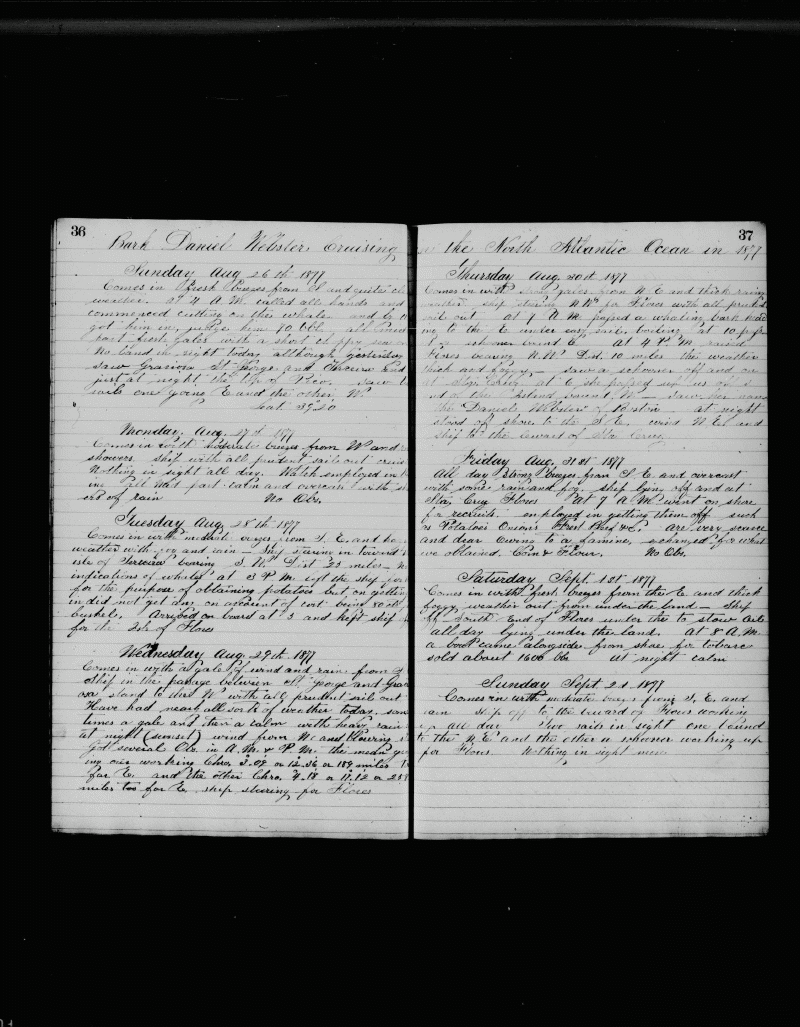 36
Bark Daniel Webster Cruising
Sunday Aug 26th 1877
Comes in fresh breezes from and quite
weather. at 4 A.M. called all hands and
commenced cutting on the whale and
got him in, judge him 40 bbl. all
part fresh gales with a short choppy sea
No Land in sight today although yesterday
saw Graciosa St George and Terceira and
just at night the top of Pico. saw
sails one going E and the other W.
Lat. 39.20
Monday, Aug. 27th 1877
Comes in with Moderate breezes from W and
showers. ship with all prudent sails out
Nothing in sight all day. Watch employed in
ing all Mat part calm and overcast with
of rain No Obs.
Tuesday Aug 28th 1877
Comes in with moderate breezes from S. E. and
weather with fog and rain — Ship steering in toward
isle of Terceira bearing S. W. Dist 25 miles —
indications of whales at 3 P.M. left the ship
for the purpose of obtaining potatoes but on getting
in did not get any on account of cost being 80 cts
bushels. Arrived on board at 5 and kept ship
for the Isle of Flores
Wednesday Aug. 29th 1877
Comes in with a gale of wind and rain from
Ship in the passage between St George and Grac
osa stand to the W with all prudent sails out
Have had nearly all sorts of weather today, some
times a gale and then a calm with heavy rain
at night (sunset) wind from N and
Got several Obs in A.M. & P.M. the mean
ing our working Chro. 3.09 or 12.36 or 189 miles
far E. and the other Chro. 4.18 or 17.12 or 258
miles too far E. ship steering for Flores
37
the North Atlantic Ocean in 1877
Thursday Aug. 30th 1877
Comes in with strong gales from N. E. and thick rainy
weather. ship steering N.W. for Flores with all prudent
sail out at 7 A.M. passed a whaling bark
ing to the E under easy sail, boiling at 10 passed
a schooner bound E. at 4 P.M. raised
Flores bearing N.W. Dist. 10 miles the weather
thick and foggy, — saw a schooner off and on
at Sta Cruz at 6 she passed us
of the Island bound W — saw her name
the Daniel Webster of Boston at night
stood off shore to the S E. wind N. E. and
ship to the leward of Sta Cruz
Friday Aug. 31st 1877
All day Strong breezes from S. E. and overcast
with some rain and fog. ship lying off and at
Sta Cruz Flores At 7 A.M. went on shore
for recruits. employed in getting them off such
as Potatoes Onions Fruit &c. are very scarce
and dear Owing to a famine, exchanged for what
we obtained. Corn & Flour. No Obs.
Saturday Sept. 1st 1877
Comes in with fresh breezes from the E and thick
foggy weather out from under the land — ship
off South End of Flores under the to stow
all day lying under the land. at 8 A.M.
a boat came alongside from shore for tobacco
sold about 1600 lbs at night calm
Sunday Sept. 2d 1877
Comes in with moderate breeze from S. E. and
rain ship off to the leward of Flores working
in all day Two sails in sight one bound
to the N. E. and the other a schooner working up
for Flores. Nothing in sight